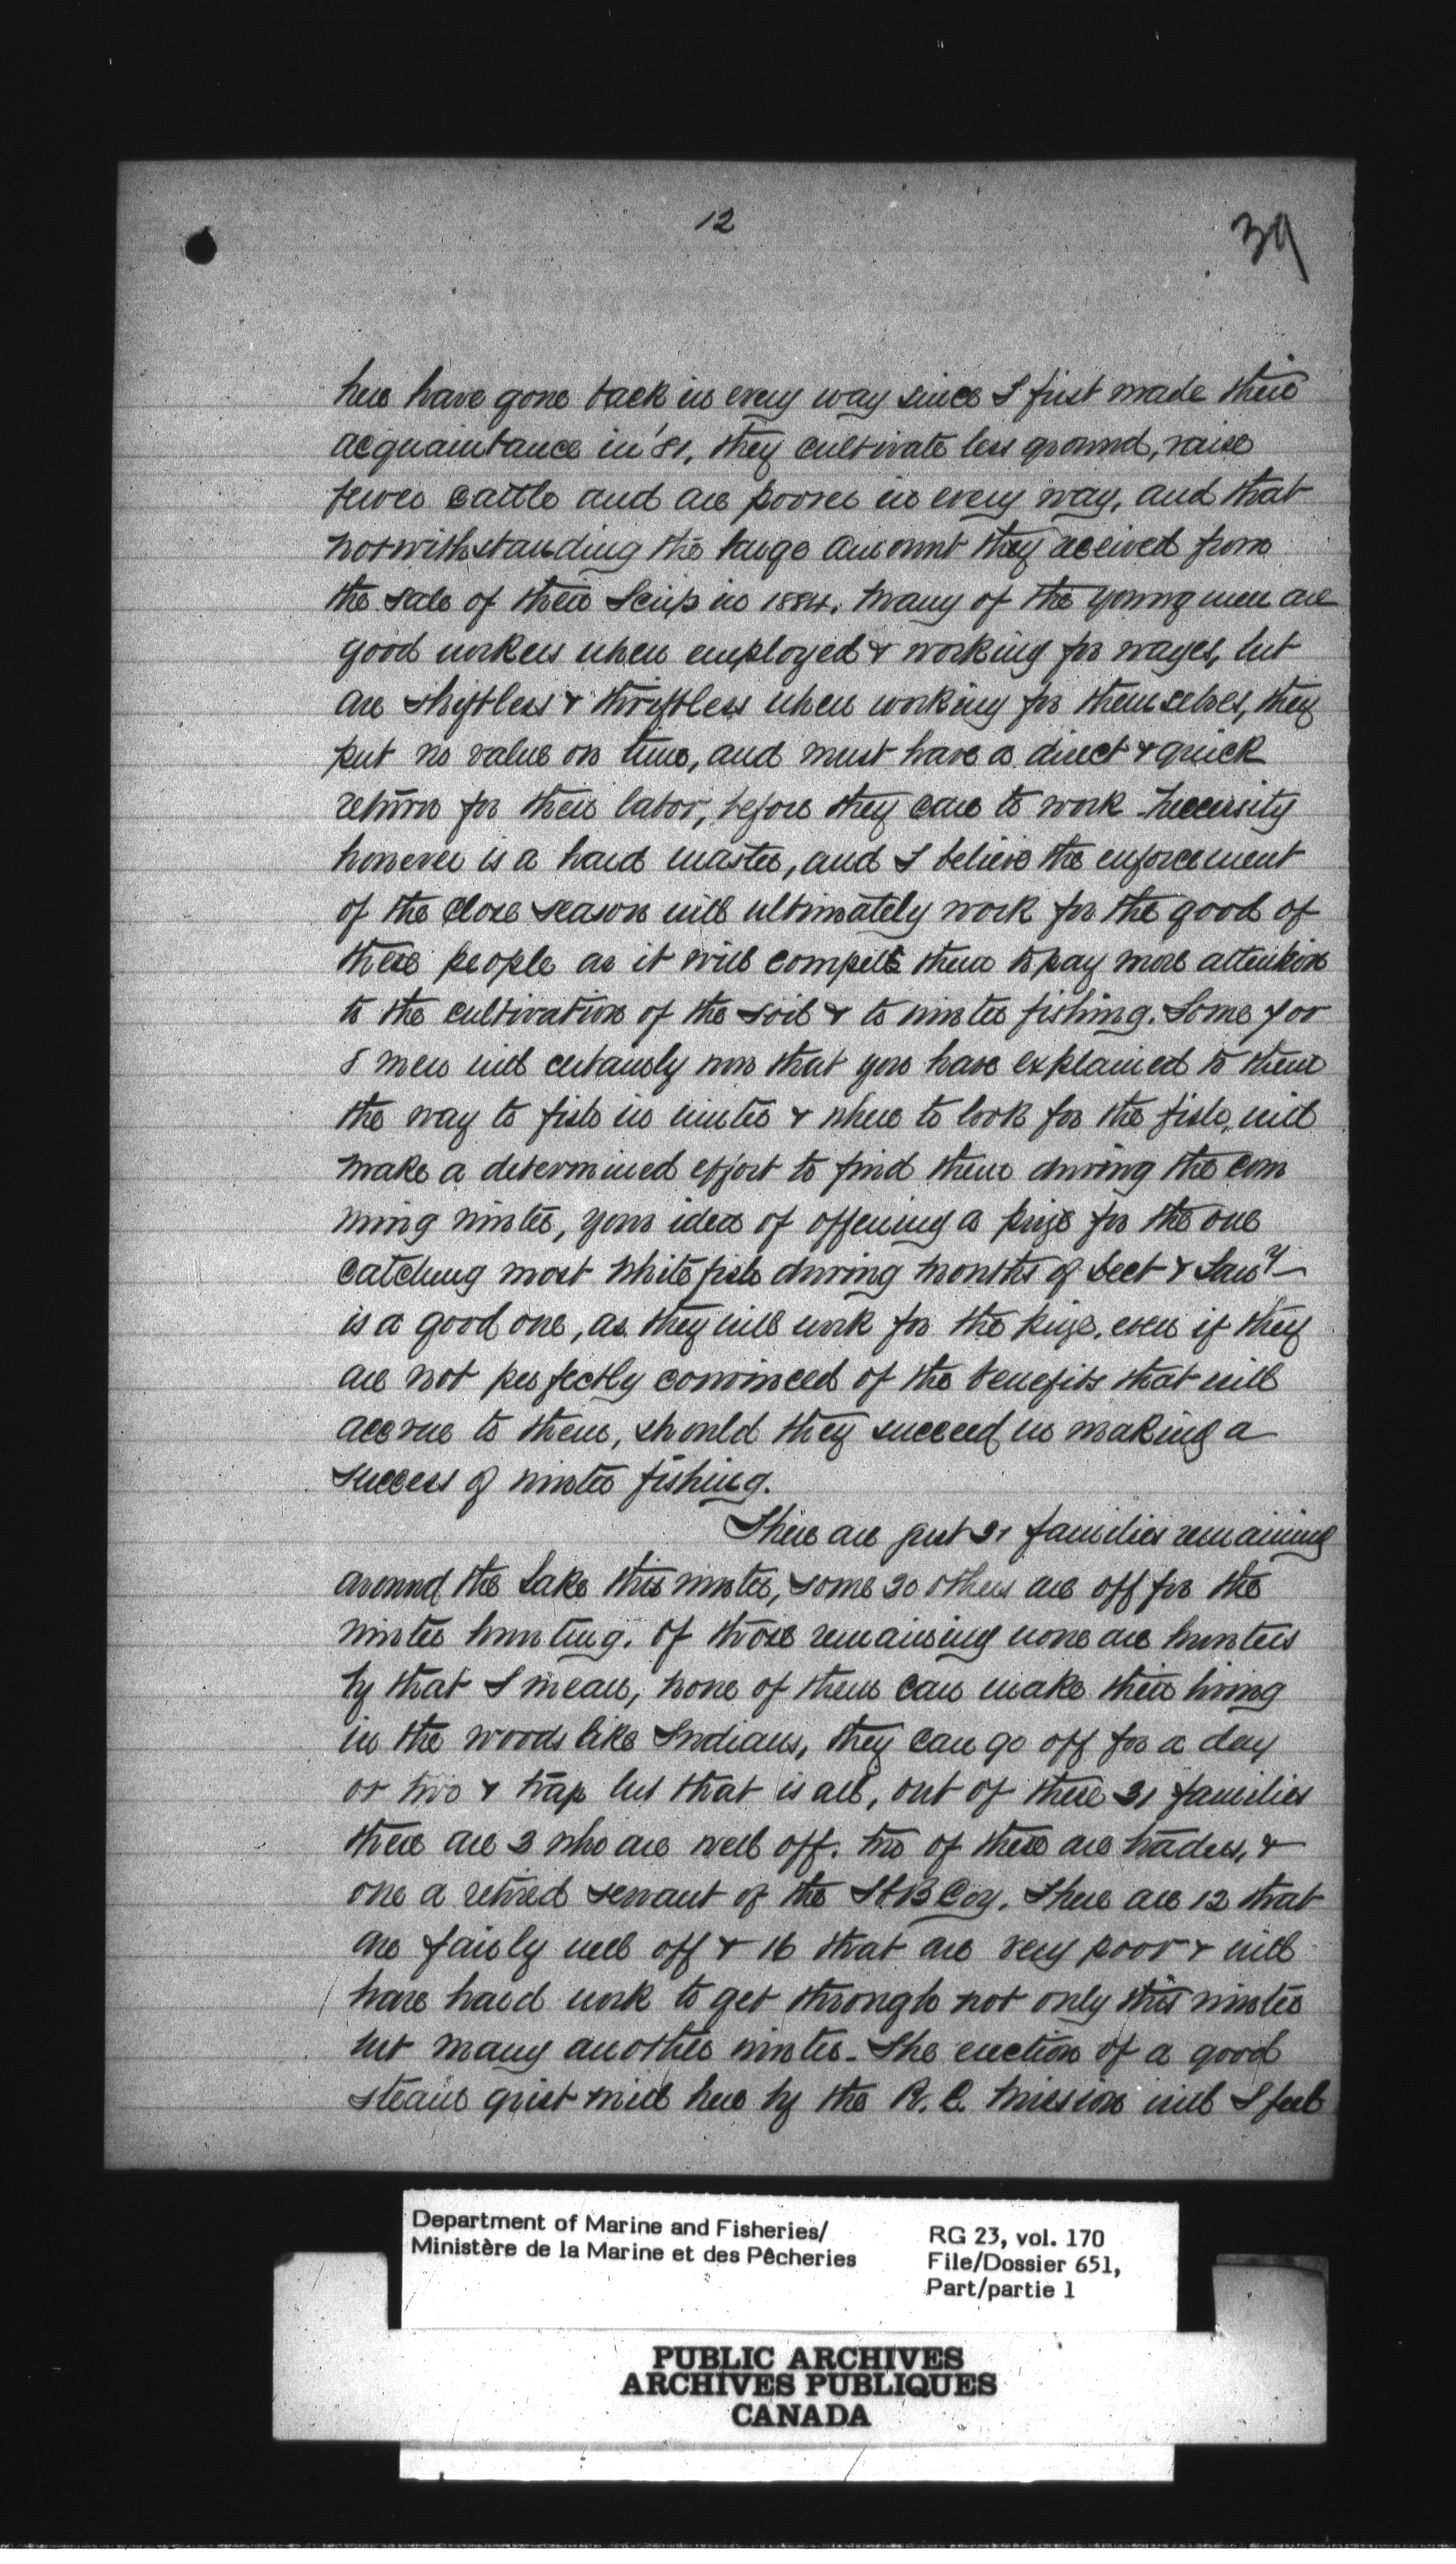 12
39
here have gone back in every way since I first made their
acquaintance in '81, they cultivate less ground, raise
fewer cattle and are poorer in every way, and that
notwithstanding the large amount they received from
the sale of their Scrip in 1884. Many of the young men are
good workers when employed & working for wages, but
are shiftless & thriftless when working for themselves, they
put no value on time, and must have a direct & quick
return for their labor, before they care to work. Necessity
however is a hard master, and I believe the enforcement
of the close season will ultimately work for the good of
these people as it will compell them to pay more attention
to the cultivation of the soil & to winter fishing. Some 7 or
8 men will certainly now that you have explained to them
the way to fish in winter & where to look for the fish, will
make a determined effort to find them during the com
ming winter, your idea of offering a prize for the one
catching most whitefish during months of Dect & Jany
is a good one, as they will work for the prize, even if they
are not perfectly convinced of the benefits that will
accrue to them, should they succeed in making a
success of winter fishing.
There are just 31 families remaining
around the Lake this winter, some 30 others are off for the
winter hunting. Of those remaining none are hunters
by that I mean, none of them can make their living
in the woods like Indians, they can go off for a day
or two & trap but that is all, out of these 31 families
there are 3 who are well off. two of these are traders, &
one a retired servant of the H.B.Coy. There are 12 that
are fairly well off & 16 that are very poor & will
have hard work to get through not only this winter
but many another winter. The erection of a good
steam grist mill here by the R. C. Mission will I feel
Department of Marine and Fisheries/
Ministère de la Marine et des Pêcheries
RG 23, vol. 170
File/Dossier 651,
Part/partie 1
PUBLIC ARCHIVES
ARCHIVES PUBLIQUES
CANADA